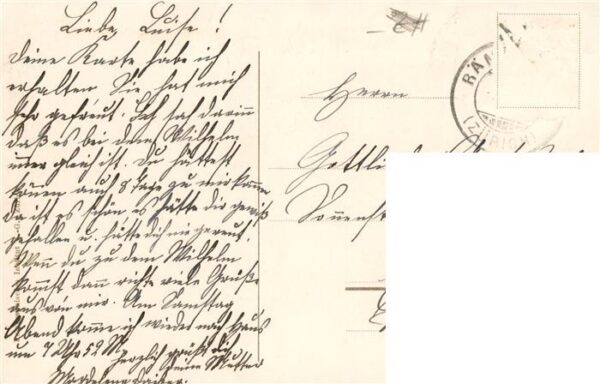 Liebe Luise!
Deine Karte habe ich
erhalten Sie hat mich
sehr gefreut. Ich sah darin
daß es bei dem Wilhelm
immer gleich ist. Du hättest
können auch 8 Tage zu mir kommen
da ist es schön es hätte dir gewiß
gefallen u. hätte dich nie gereut.
Wenn du zu dem Wilhelm
kommst dann richte viele Grüße
aus von mir. Am Samstag
Abend komme ich wieder nach Haus
um 7 Uhr 52 M
herzlich grüßt dich
deine Mutter
Magdalena
Herrn
Gottlieb
Sonnenst
RÄ
(ZÜRICH)